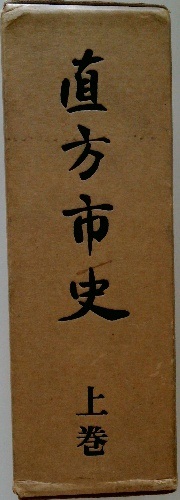 直方市史
上巻